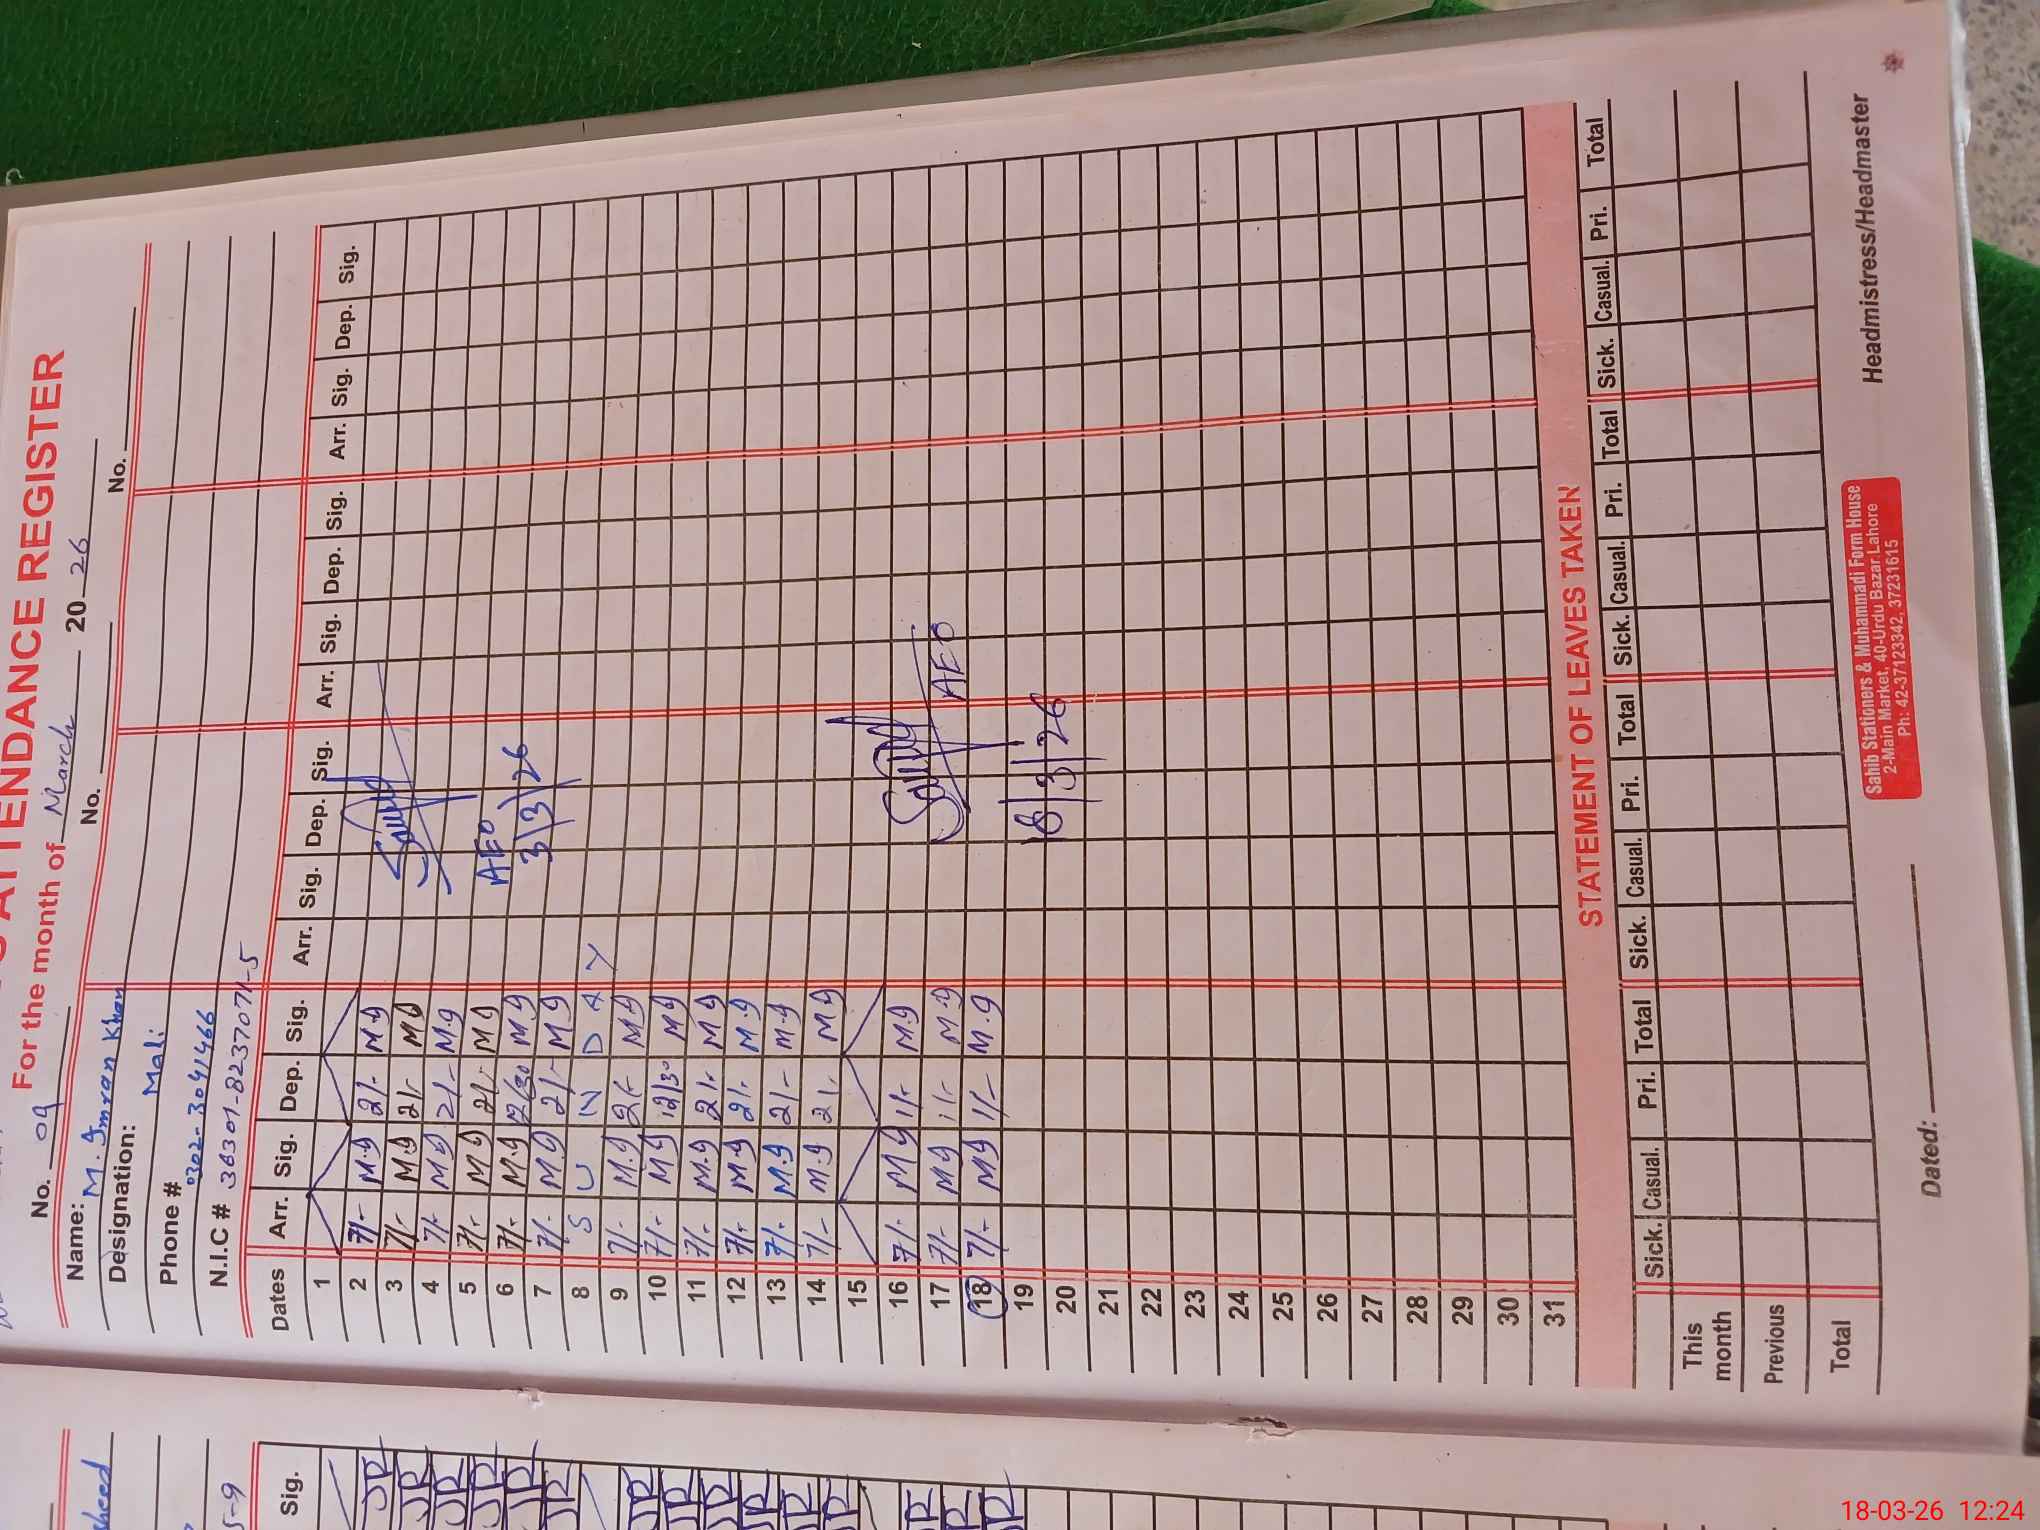 ATTENDANCE REGISTER
For the month of March 2026
No. 09 No. No.
Name: M. Imran Khan
Designation: Mali
Phone # 0302-3041466
N.I.C # 36301-8237071-5
Dates Arr. Sig. Dep. Sig. Arr. Sig. Dep. Sig. Arr. Sig. Dep. Sig. Arr. Sig. Dep. Sig.
1
2 7/- M.g 2/- M.g
3 7/- M.g 2/- M.g
4 7/- M.g 2/- M.g
5 7/- M.g 2/- M.g
6 7/- M.g 12/30 M.g
7 7/- M.g 2/- M.g
8 S U N D A Y
9 7/- M.g 2/- M.g
10 7/- M.g 12/30 M.g
11 7/- M.g 2/- M.g
12 7/- M.g 2/- M.g
13 7/- M.g 2/- M.g
14 7/- M.g 2/- M.g
15
16 7/- M.g 1/- M.g
17 7/- M.g 1/- M.g
18 7/- M.g 1/- M.g
19
20
21
22
23
24
25
26
27
28
29
30
31
AEO
3/3/26
AEO
18/3/26
STATEMENT OF LEAVES TAKEN
Sick. Casual. Pri. Total Sick. Casual. Pri. Total Sick. Casual. Pri. Total Sick. Casual. Pri. Total
This month
Previous
Total
Dated:
Sahib Stationers & Muhammadi Form House
2-Main Market, 40-Urdu Bazar Lahore
Ph: 42-37123342, 37231615
Headmistress/Headmaster
Sig.
5-9
18-03-26 12:24